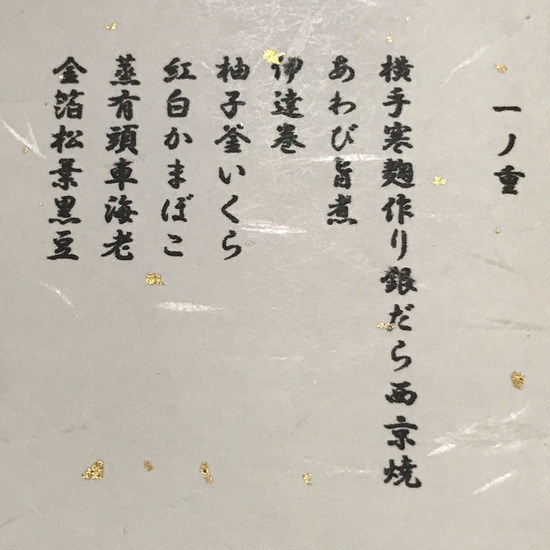 一ノ重
横手寒麹作り銀だら西京焼
あわび旨煮
伊達巻
柚子釜いくら
紅白かまぼこ
蒸有頭車海老
金箔松葉黒豆